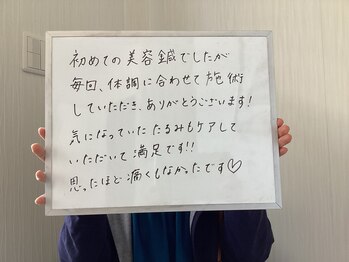 初めての美容鍼でしたが
毎回、体調に合わせて施術
していただき、ありがとうございます!
気になっていたたるみもケアして
いただいて満足です!!
思ったほど痛くもなかったです♡